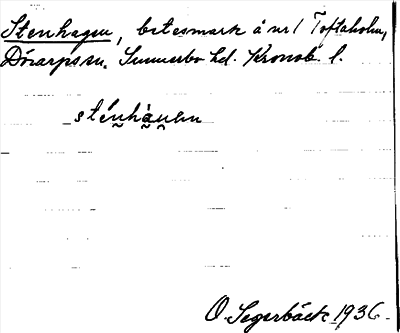 Stenhagen, betesmark å nr 1 Toftaholm,
Dörarps sn. Sunnerbo hd. Kronob. l.
O. Segerbäck 1936.